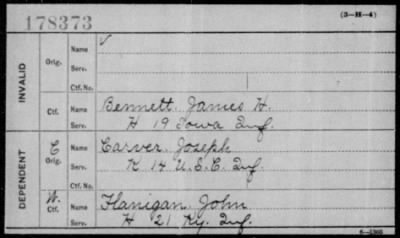 178373
(3-H-4)
INVALID
Orig. Name √
Serv.
Ctf. No.
Ctf. Name Bennett, James H.
Serv. H 19 Iowa Inf.
DEPENDENT
C Orig. Name Carver, Joseph
Serv. K 14 U.S.C. Inf
W. Ctf. Name Flanigan, John
Serv. H 21 Ky. Inf.